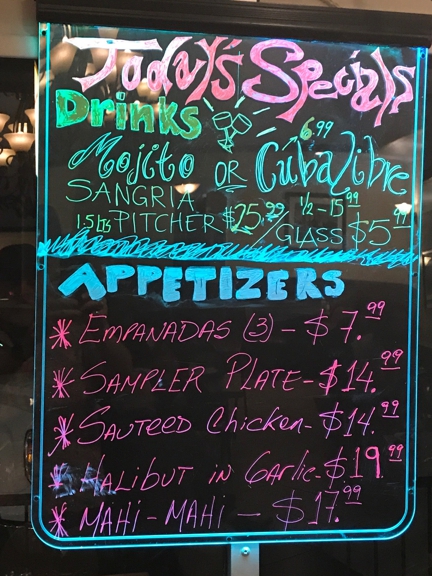 Today's Specials
Drinks
6.99
Mojito OR Cuba Libre
SANGRIA
1.5 lts PITCHER $25.99 / 1/2 - 15.99
GLASS $5.99
APPETIZERS
* EMPANADAS (3) - $7.99
* SAMPLER PLATE - $14.99
* SAUTEED Chicken - $14.99
* HALIBUT IN GARLIC - $19.99
* MAHI - MAHI - $17.99